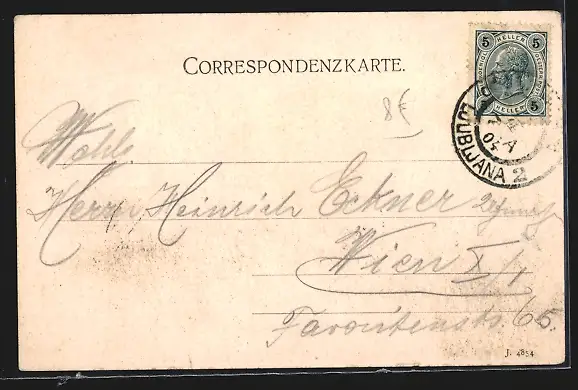 CORRESPONDENZKARTE.
5 HELLER 5
5 HELLER 5
8€
LJUBLJANA 2
04
Wohlg.
Herrn Heinrich Eckner
Wien X/1
Favoritenstr. 65.
J. 4854